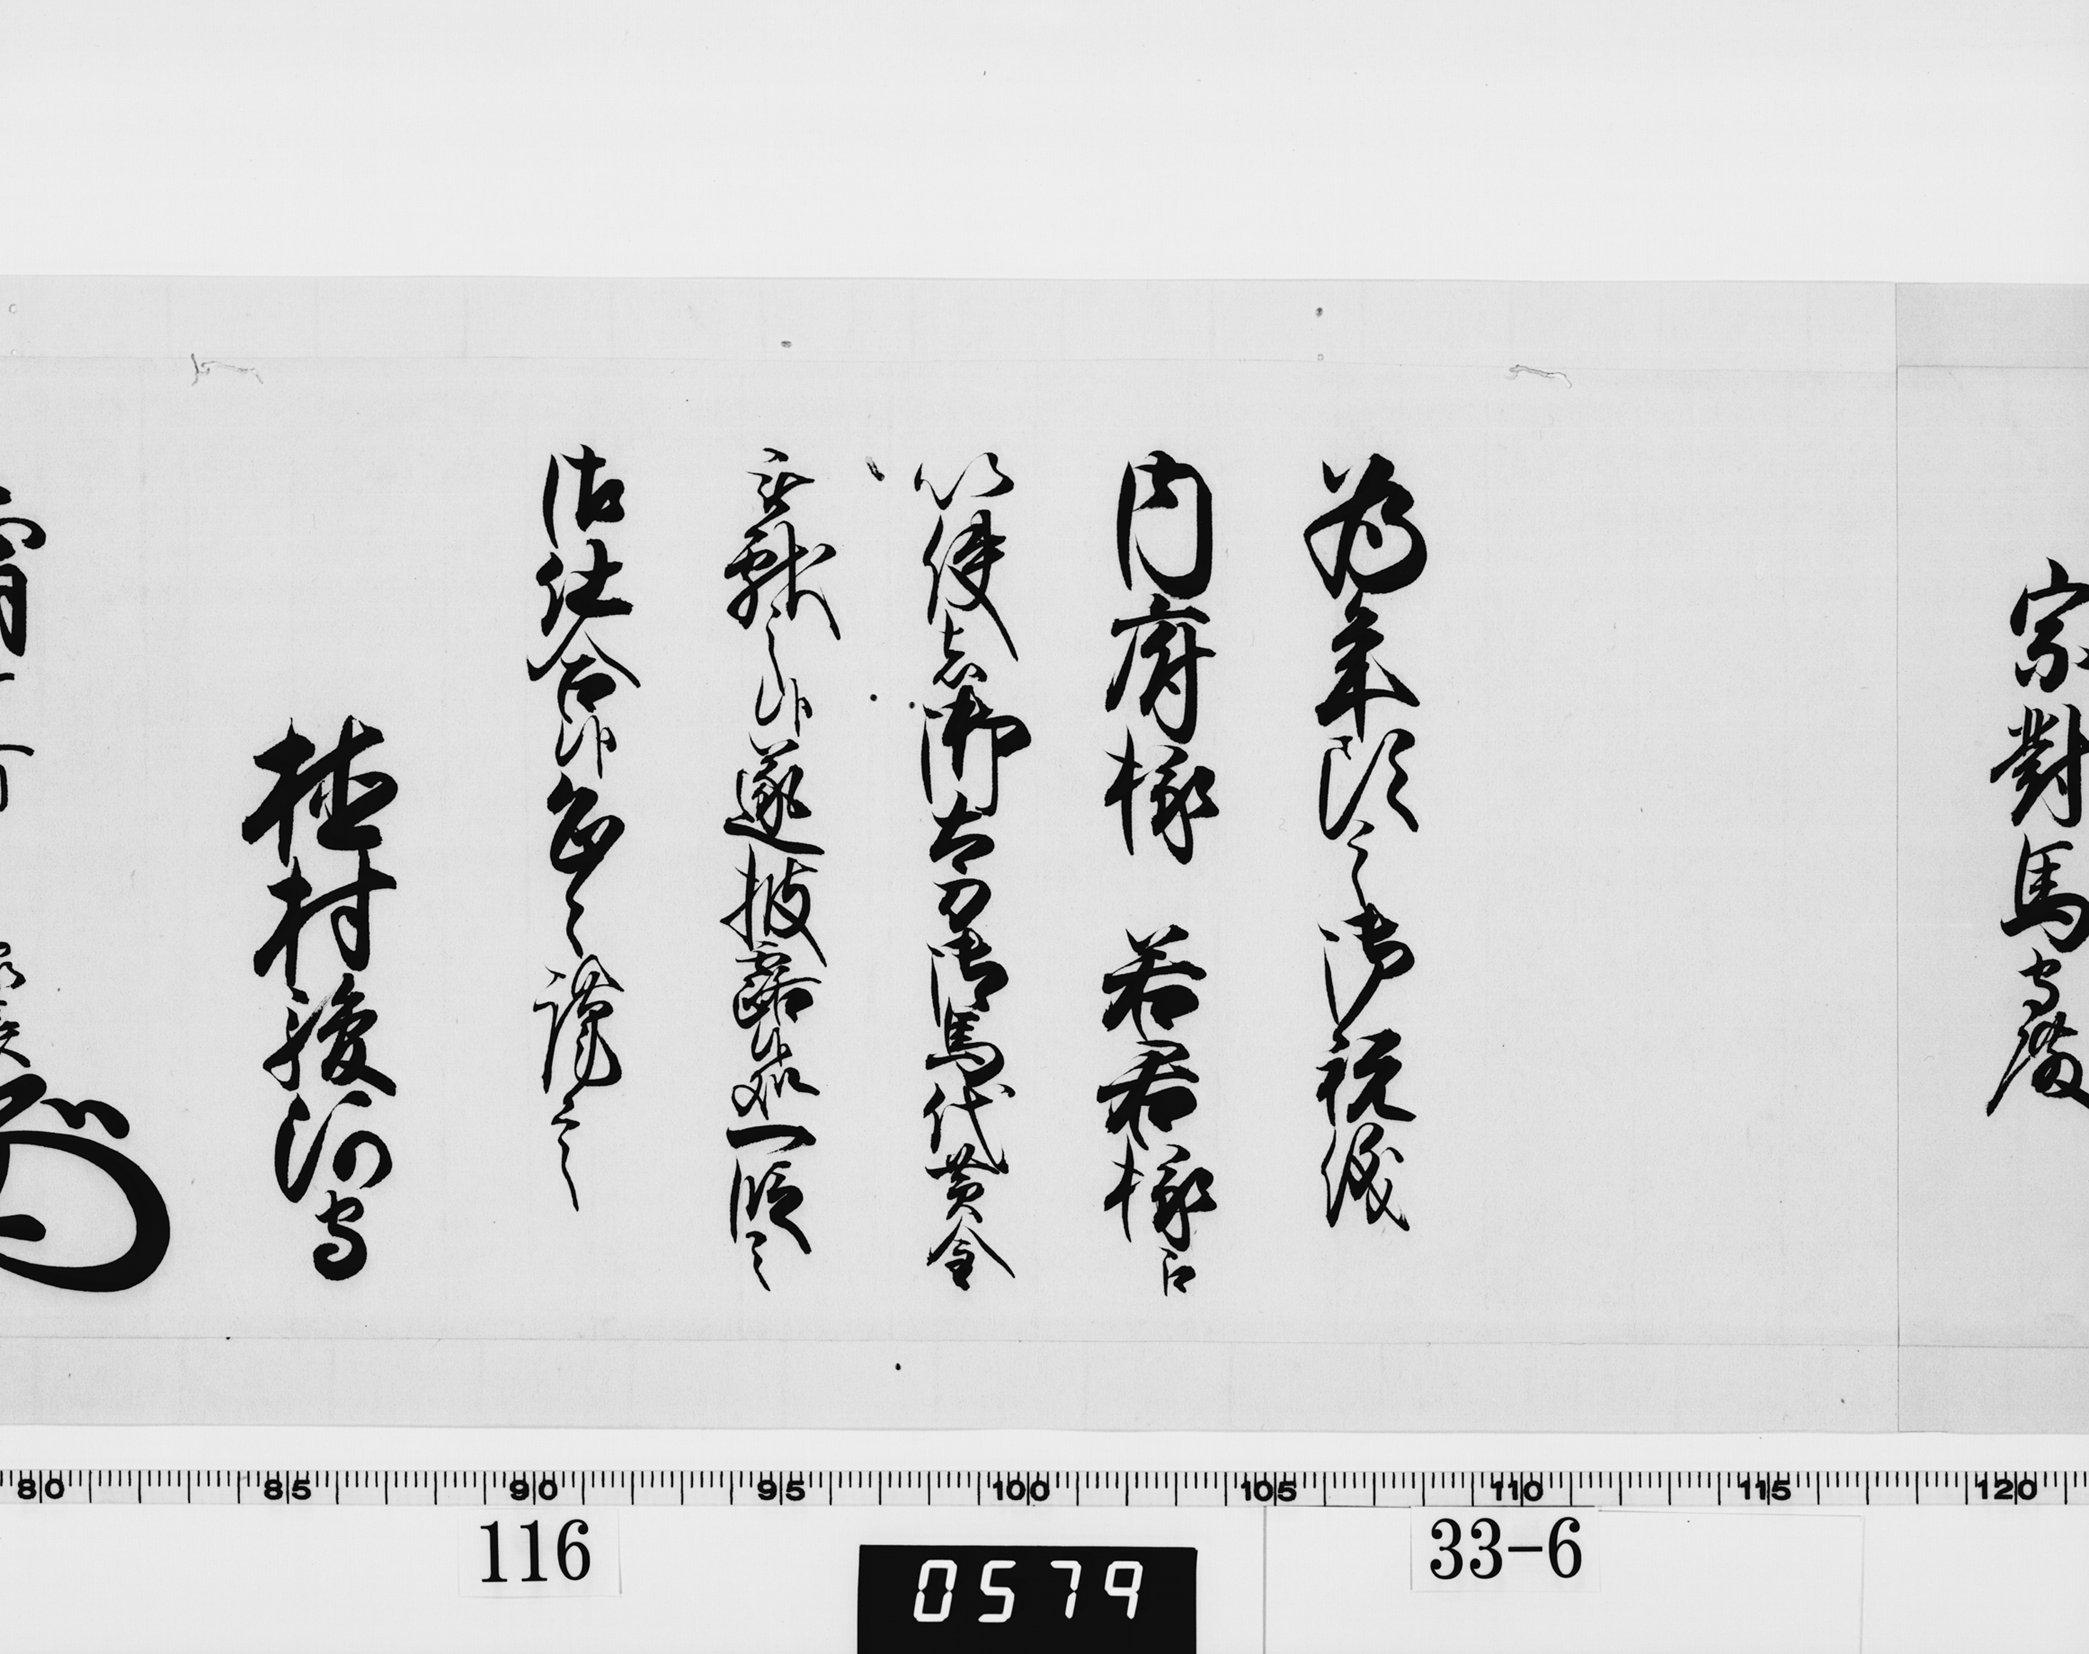 宗對馬守殿
為年頭之御祝儀
内府様 若君様江
以使者御太刀御馬代黄金
献之候遂披露候処一段之
御仕合候恐々謹言
植村駿河守
80 85 90 95 100 105 110 115 120
116
0579
33-6